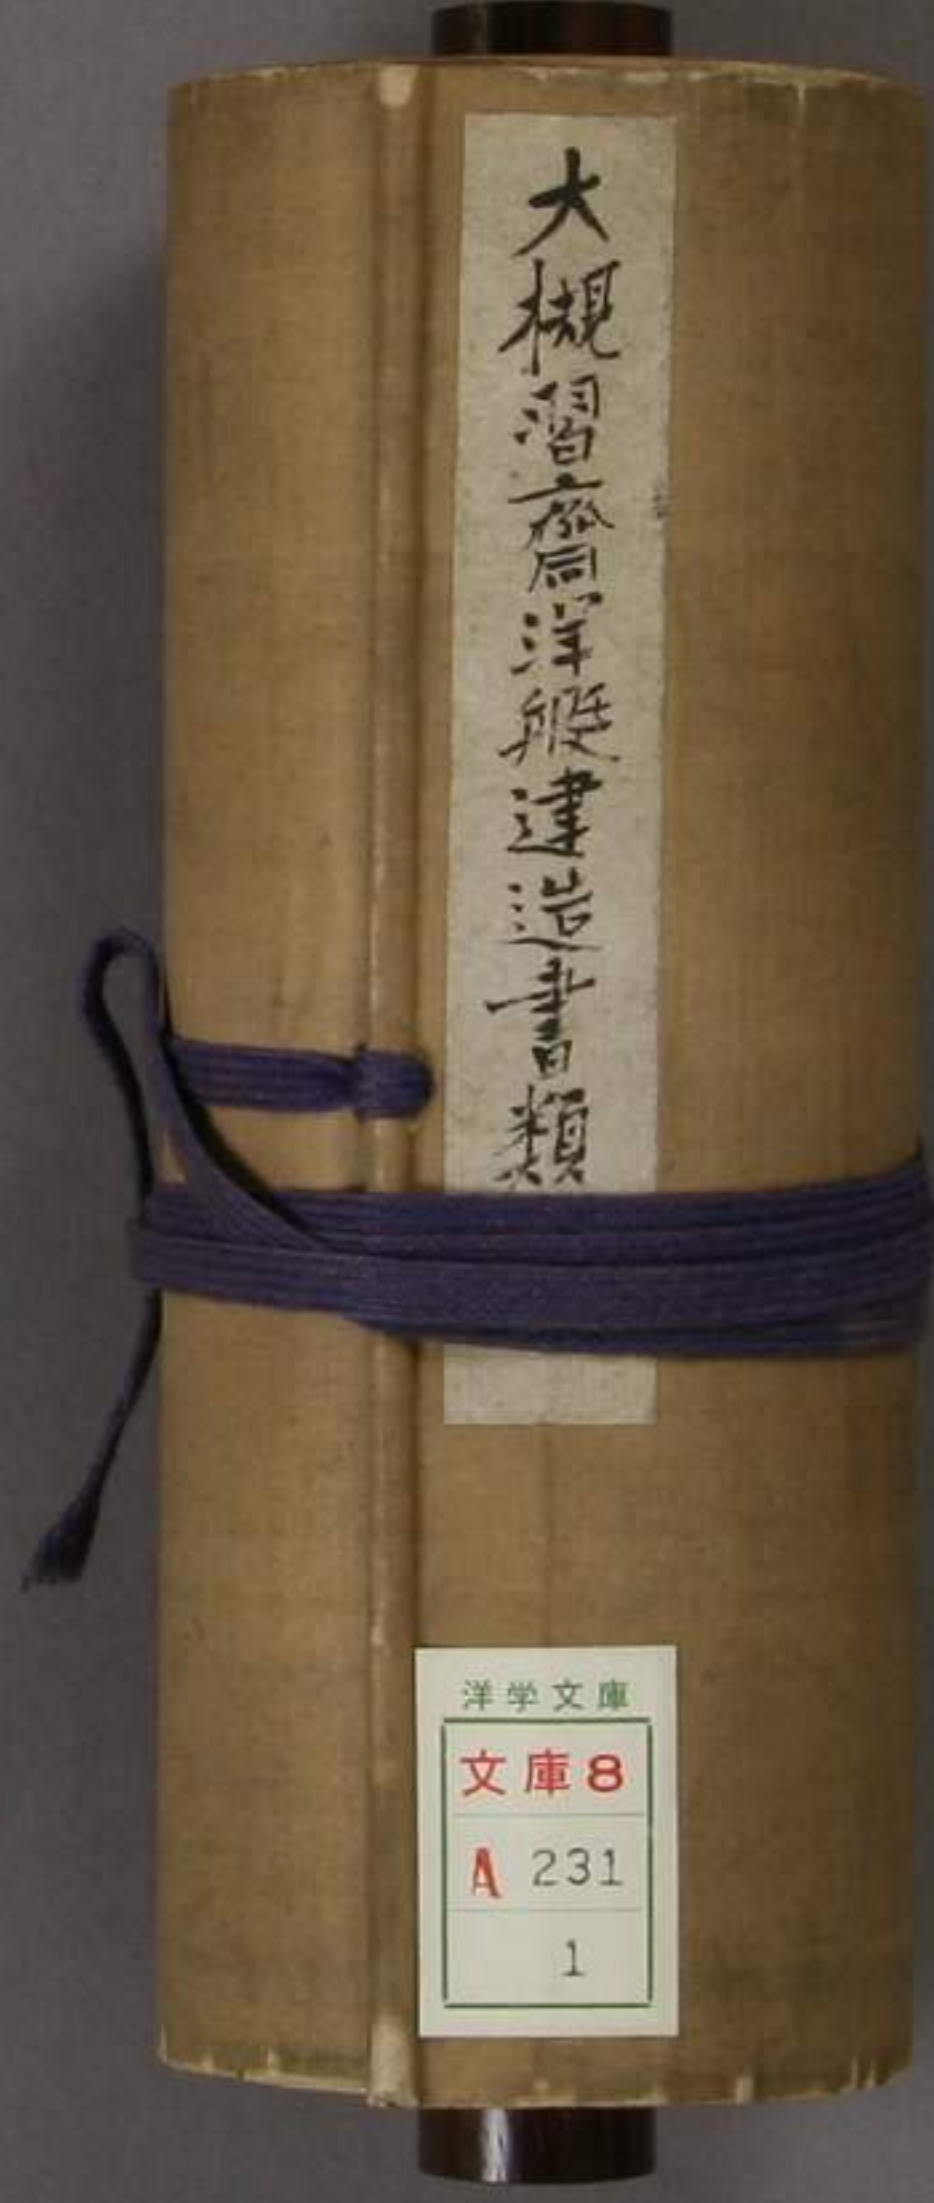 大槻習齋洋艇建造書類
洋学文庫
文庫8
A 231
1